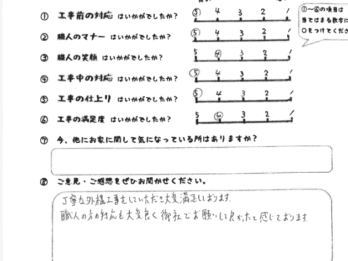 ① 工事前の対応 はいかがでしたか? ⑤ 4 3 2 1
② 職人のマナー はいかがでしたか? ⑤ 4 3 2 1
③ 職人の笑顔 はいかがでしたか? 5 ④ 3 2 1
④ 工事中の対応 はいかがでしたか? ⑤ 4 3 2 1
⑤ 工事の仕上り はいかがでしたか? ⑤ 4 3 2 1
⑥ 工事の満足度 はいかがでしたか? 5 ④ 3 2 1
①～⑥の項目は
当てはまる数字に
○をつけてくださ
⑦ 今、他にお家に関して気になっている所はありますか?
⑧ ご意見・ご感想をぜひお聞かせください。
丁寧な外構工事をしていただき大変満足しております。
職人の方の対応も大変良く御社でお願いして良かったと感じております